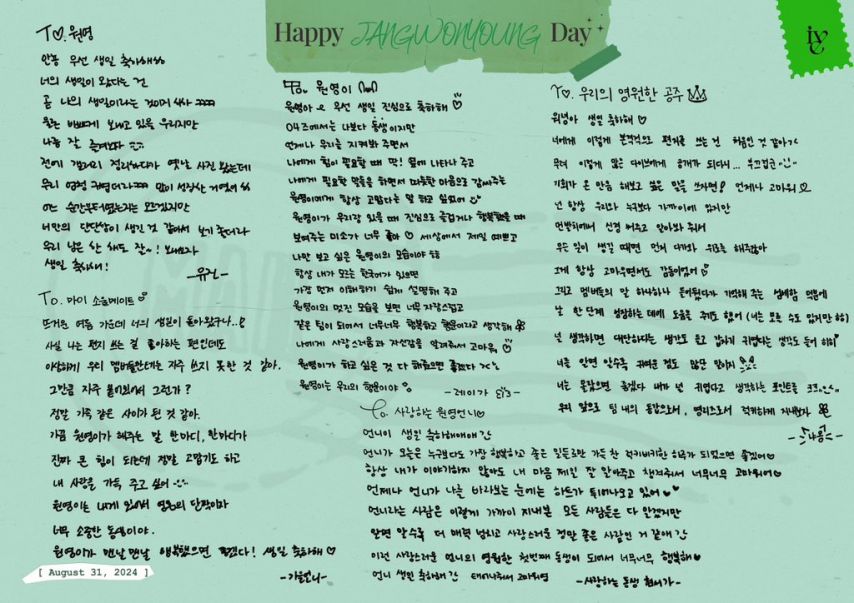 Happy JANGWONYOUNG Day
IVE
To. 원영
안뇽 우선 생일 축하해
너의 생일이 왔다는 건
곧 나의 생일이라는 것이며
나눌 잘
전에 갤러리 정리하다가 옛날 사진 봤는데
우리 많이 성장한 거였어
어느 순간부터였는지는 모르겠지만
너만의 단단함이 생긴 것 같아서 보기 좋더라
우리 남은 한 해도 잘~! 보내보자
생일 축하해!
-유진-
To. 마이 소울메이트
뜨거운 여름 가운데 너의 생일이 돌아왔구나..!
사실 나는 편지 쓰는 걸 좋아하는 편인데도
이상하게 우리 멤버들한테는 자주 쓰지 못한 것 같아.
그만큼 자주 붙어있어서 그런가?
정말 가족 같은 사이가 된 것 같아.
가끔 원영이가 해주는 말 한마디, 한마디가
진짜 큰 힘이 되는데 정말 고맙기도 하고
내 사랑을 가득 주고 싶어
원영이는 내게 있어서 영원의 단짝이자
너무 소중한 동생이야.
원영이가 맨날맨날 행복했으면 좋겠다! 생일 축하해♡
-가을언니-
[ August 31, 2024 ]
To. 원영이
원영아 우선 생일 진심으로 축하해♡
04즈에서는 나보다 동생이지만
언제나 우리를 지켜봐 주면서
나에게 힘이 필요할 때 딱! 옆에 나타나 주고
나에게 필요한 말들을 하면서 따뜻한 마음으로 감싸주는
원영이에게 항상 고맙다는 말 하고 싶었어
원영이가 우리랑 있을 때 진심으로 즐겁거나 행복했을 때
보여주는 미소가 너무 좋아♡ 세상에서 제일 예쁘고
나만 보고 싶은 원영이의 모습이야
항상 내가 모르는 한국어가 있으면
가장 먼저 이해하기 쉽게 설명해 주고
원영이의 멋진 모습을 보면 너무 자랑스럽고
같은 팀이 되어서 너무너무 행복하고 행운이라고 생각해
나에게 사랑스러움과 자신감을 알려줘서 고마워♡
원영이가 하고 싶은 것 다 해줬으면 좋겠다><
원영이는 우리의 행운이야
-레이가
To. 사랑하는 원영언니♡
언니이 생일 축하해애애
언니가 오늘은 누구보다도 가장 행복하고 좋은 일들로만 가득 찬 럭키비키한 하루가 되었으면 좋겠어♡
항상 내가 이야기하지 않아도 내 마음 제일 잘 알아주고 챙겨줘서 너무너무 고마워어♡
언제나 언니가 나를 바라보는 눈에는 하트가 튀어나오고 있어
언니라는 사람은 이렇게 가까이 지내본 모든 사람들은 다 알겠지만
알면 알수록 더 매력 넘치고 사랑스러운 정말 좋은 사람인 거 같애
이런 사랑스러운 언니의 영원한 첫번째 동생이 되어서 너무너무 행복해♡
언니 생일 축하해 태어나줘서 고마워엉
-사랑하는 동생 현서가-
To. 우리의 영원한 공주
워녕아 생일 축하해♡
너에게 이렇게 본격적으로 편지를 쓰는 건 처음인 것 같아><
무려 이렇게 많은 다이브에게 공개가 되다니... 부끄럽군
기회가 온 만큼 해보고 싶은 말을 쓰자면! 언제나 고마워♡
넌 항상 우리와 누구보다 가까이에 있지만
먼발치에서 신경 써주고 알아봐 줘서
무슨 일이 생길 때면 먼저 다가와 위로를 해주잖아
그게 항상 고마우면서도 감동이었어
그리고 멤버들의 말 하나하나 들어뒀다가 기억해 주는 섬세함 덕분에
날 한 단계 성장하는 데에 도움을 주기도 했어 (너는 모를 수도 있지만 하하)
널 생각하면 대단하다는 생각도 들고 귀엽다는 생각도 들어 히히
너를 알면 알수록 귀여운 점도 많단 말이지
너는 몰랐으면 좋겠다 내가 널 귀엽다고 생각하는 포인트를 크크
우리 앞으로 팀 내의 동갑으로서, 영리즈로서 럭키하게 지내보자